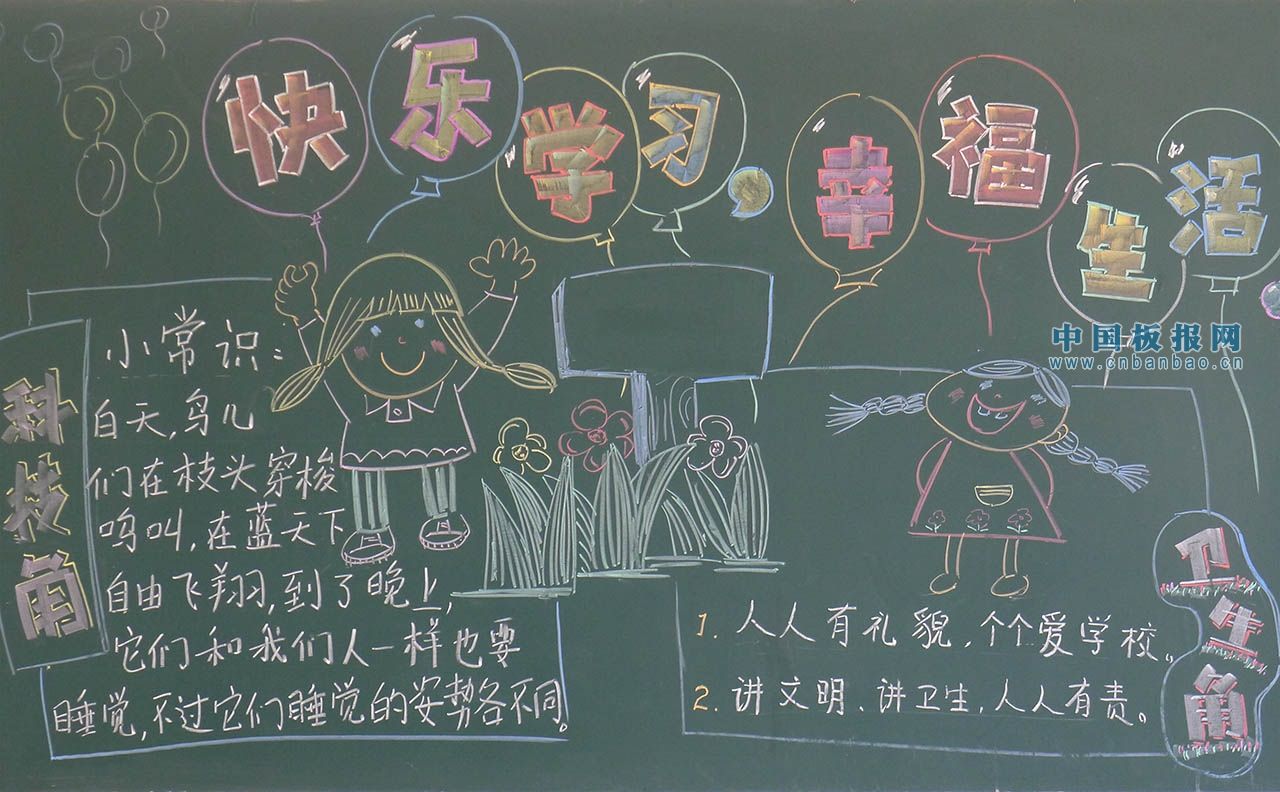 快乐学习 幸福生活
中国板报网
www.cnbanbao.cn
科技角
小常识:
白天,鸟儿
们在枝头穿梭
鸣叫,在蓝天下
自由飞翔,到了晚上,
它们和我们人一样也要
睡觉,不过它们睡觉的姿势各不同。
1. 人人有礼貌,个个爱学校。
2. 讲文明、讲卫生,人人有责。
卫生角